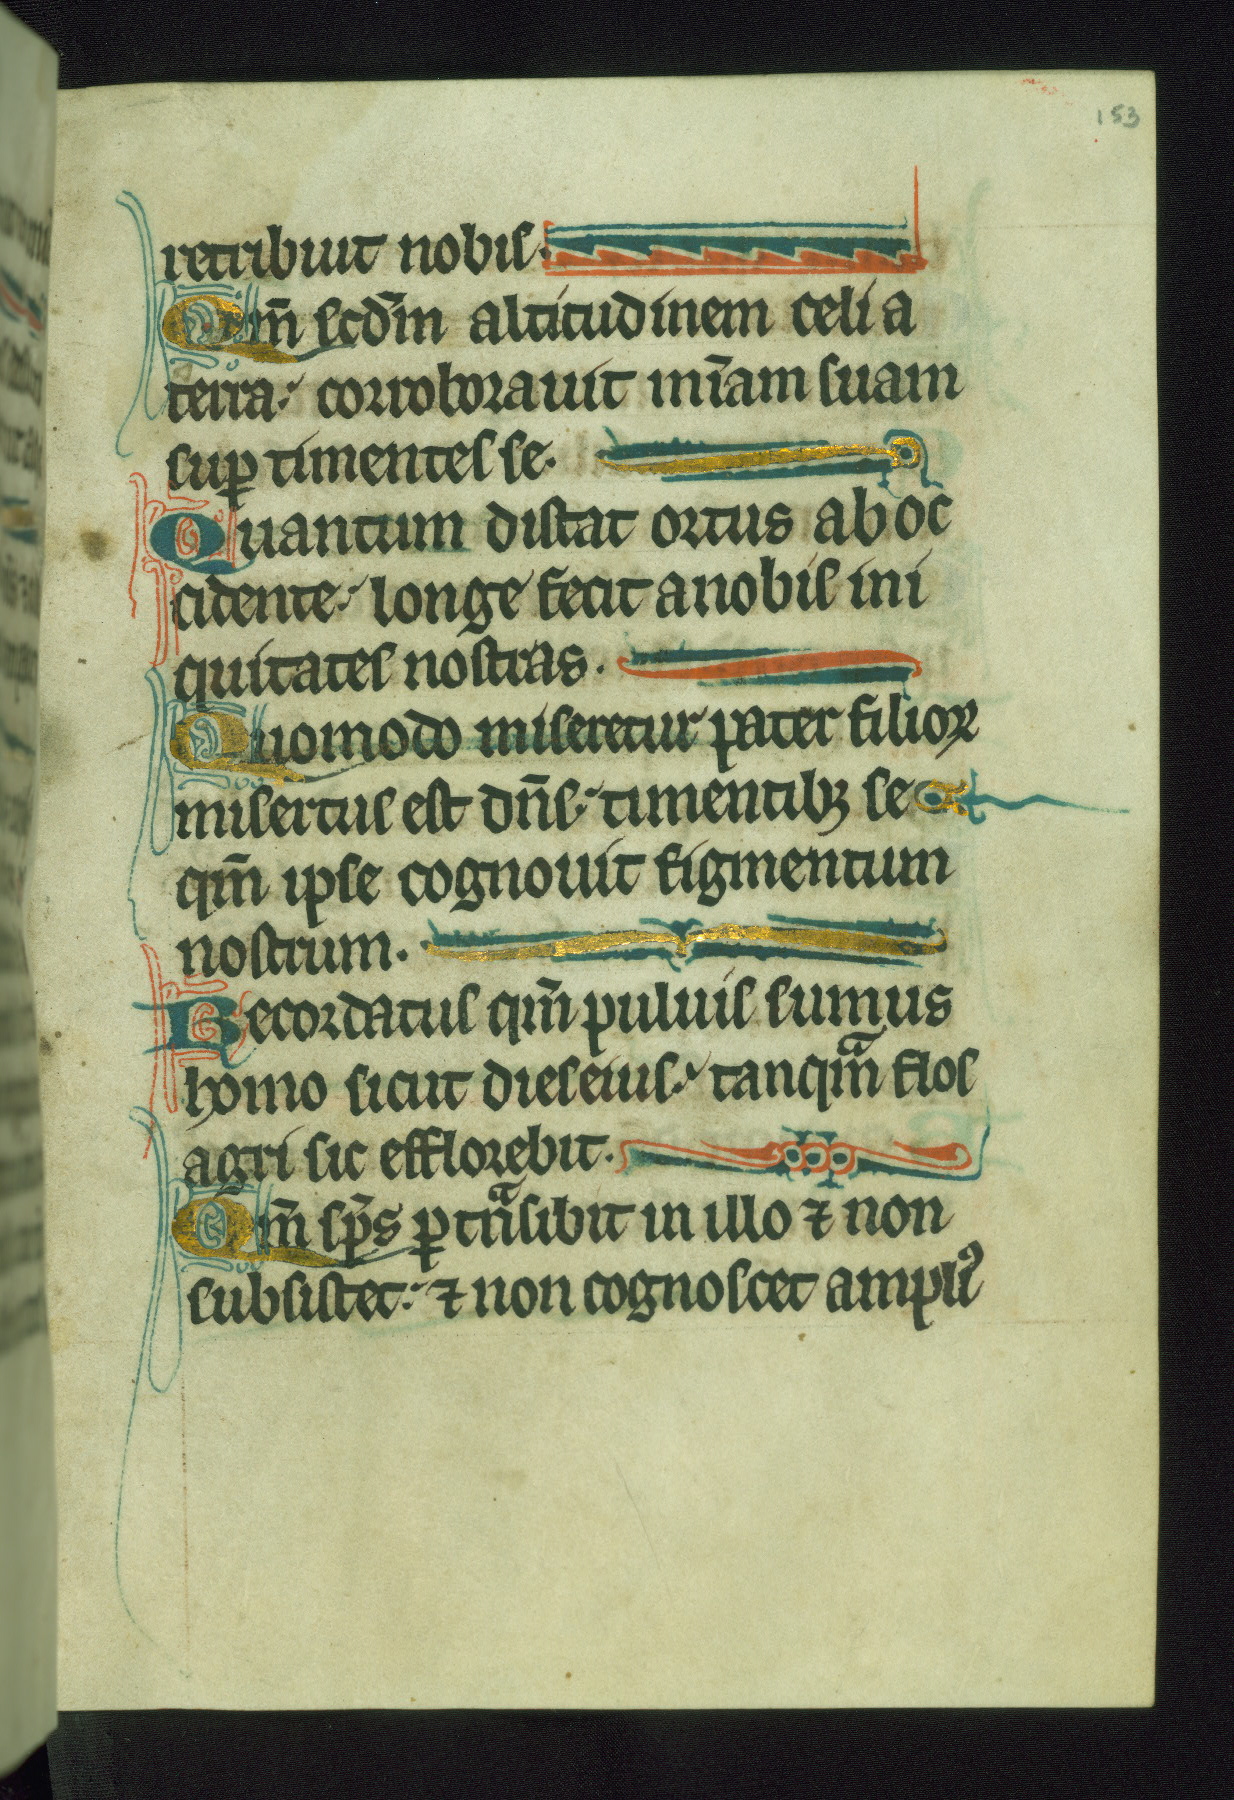 153
retribuit nobis.
Qm̄ scd̄m altitudinem celi a
terra: corroborauit mīam suam
suꝑ timentes se.
Quantum distat ortus ab oc
cidente: longe fecit a nobis ini
quitates nostras.
Quomodo miseretur pater filioꝝ
misertus est dn̄s: timentibꝫ se
qm̄ ipse cognouit figmentum
nostrum.
Recordatus qm̄ puluis sumus
homo sicut dies eius: tanqᵃm flos
agri sic efflorebit.
Qm̄ sp̄s ꝑtnᵃsibit in illo ⁊ non
subsistet: ⁊ non cognoscet ampliꝰ